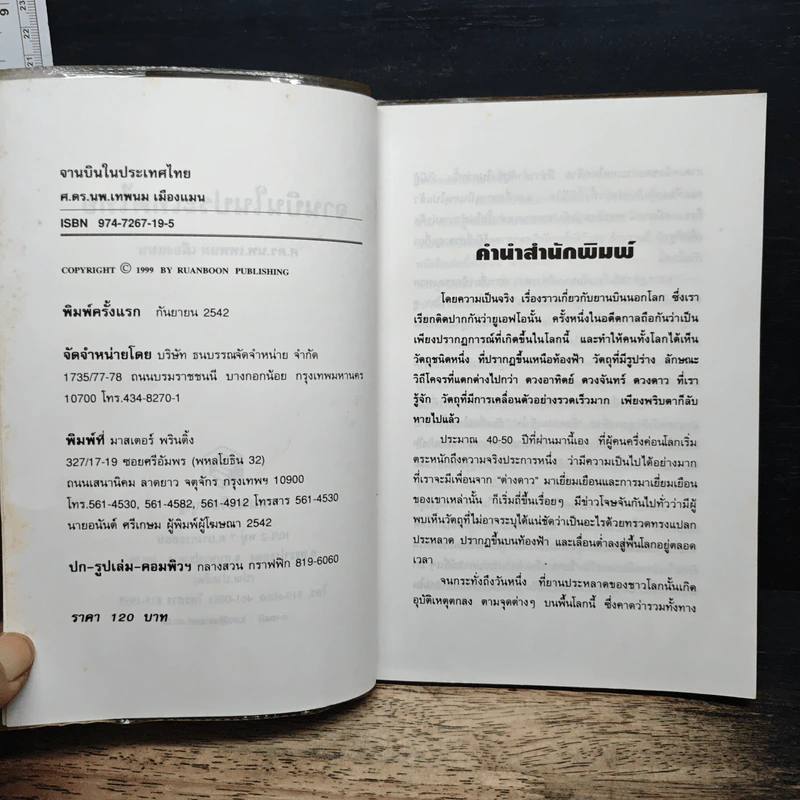 จานบินในประเทศไทย
ศ.ดร.นพ.เทพนม เมืองแมน
ISBN 974-7267-19-5
COPYRIGHT © 1999 BY RUANBOON PUBLISHING
พิมพ์ครั้งแรก กันยายน 2542
จัดจำหน่ายโดย บริษัท ธนบรรณจัดจำหน่าย จำกัด
1735/77-78 ถนนบรมราชชนนี บางกอกน้อย กรุงเทพมหานคร
10700 โทร.434-8270-1
พิมพ์ที่ มาสเตอร์ พรินติ้ง
327/17-19 ซอยศรีอัมพร (พหลโยธิน 32)
ถนนเสนานิคม ลาดยาว จตุจักร กรุงเทพฯ 10900
โทร.561-4530, 561-4582, 561-4912 โทรสาร 561-4530
นายอนันต์ ศรีเกษม ผู้พิมพ์ผู้โฆษณา 2542
ปก-รูปเล่ม-คอมพิวฯ กลางสวน กราฟฟิก 819-6060
ราคา 120 บาท
คำนำสำนักพิมพ์
โดยความเป็นจริง เรื่องราวเกี่ยวกับยานบินนอกโลก ซึ่งเรา
เรียกติดปากกันว่ายูเอฟโอนั้น ครั้งหนึ่งในอดีตกาลถือกันว่าเป็น
เพียงปรากฏการณ์ที่เกิดขึ้นในโลกนี้ และทำให้คนทั้งโลกได้เห็น
วัตถุชนิดหนึ่ง ที่ปรากฏขึ้นเหนือท้องฟ้า วัตถุที่มีรูปร่าง ลักษณะ
วิถีโคจรที่แตกต่างไปกว่า ดวงอาทิตย์ ดวงจันทร์ ดวงดาว ที่เรา
รู้จัก วัตถุที่มีการเคลื่อนตัวอย่างรวดเร็วมาก เพียงพริบตาก็ลับ
หายไปแล้ว
ประมาณ 40-50 ปีที่ผ่านมานี้เอง ที่ผู้คนครึ่งค่อนโลกเริ่ม
ตระหนักถึงความจริงประการหนึ่ง ว่ามีความเป็นไปได้อย่างมาก
ที่เราจะมีเพื่อนจาก "ต่างดาว" มาเยี่ยมเยือนและการมาเยี่ยมเยือน
ของเขาเหล่านั้น ก็เริ่มถี่ขึ้นเรื่อยๆ มีข่าวโจษจันกันไปทั่วว่ามีผู้
พบเห็นวัตถุที่ไม่อาจระบุได้แน่ชัดว่าเป็นอะไรด้วยทรวดทรงแปลก
ประหลาด ปรากฏขึ้นบนท้องฟ้า และเลื่อนต่ำลงสู่พื้นโลกอยู่ตลอด
เวลา
จนกระทั่งถึงวันหนึ่ง ที่ยานประหลาดของชาวโลกนั้นเกิด
อุบัติเหตุตกลง ตามจุดต่างๆ บนพื้นโลกนี้ ซึ่งคาดว่ารวมทั้งทาง